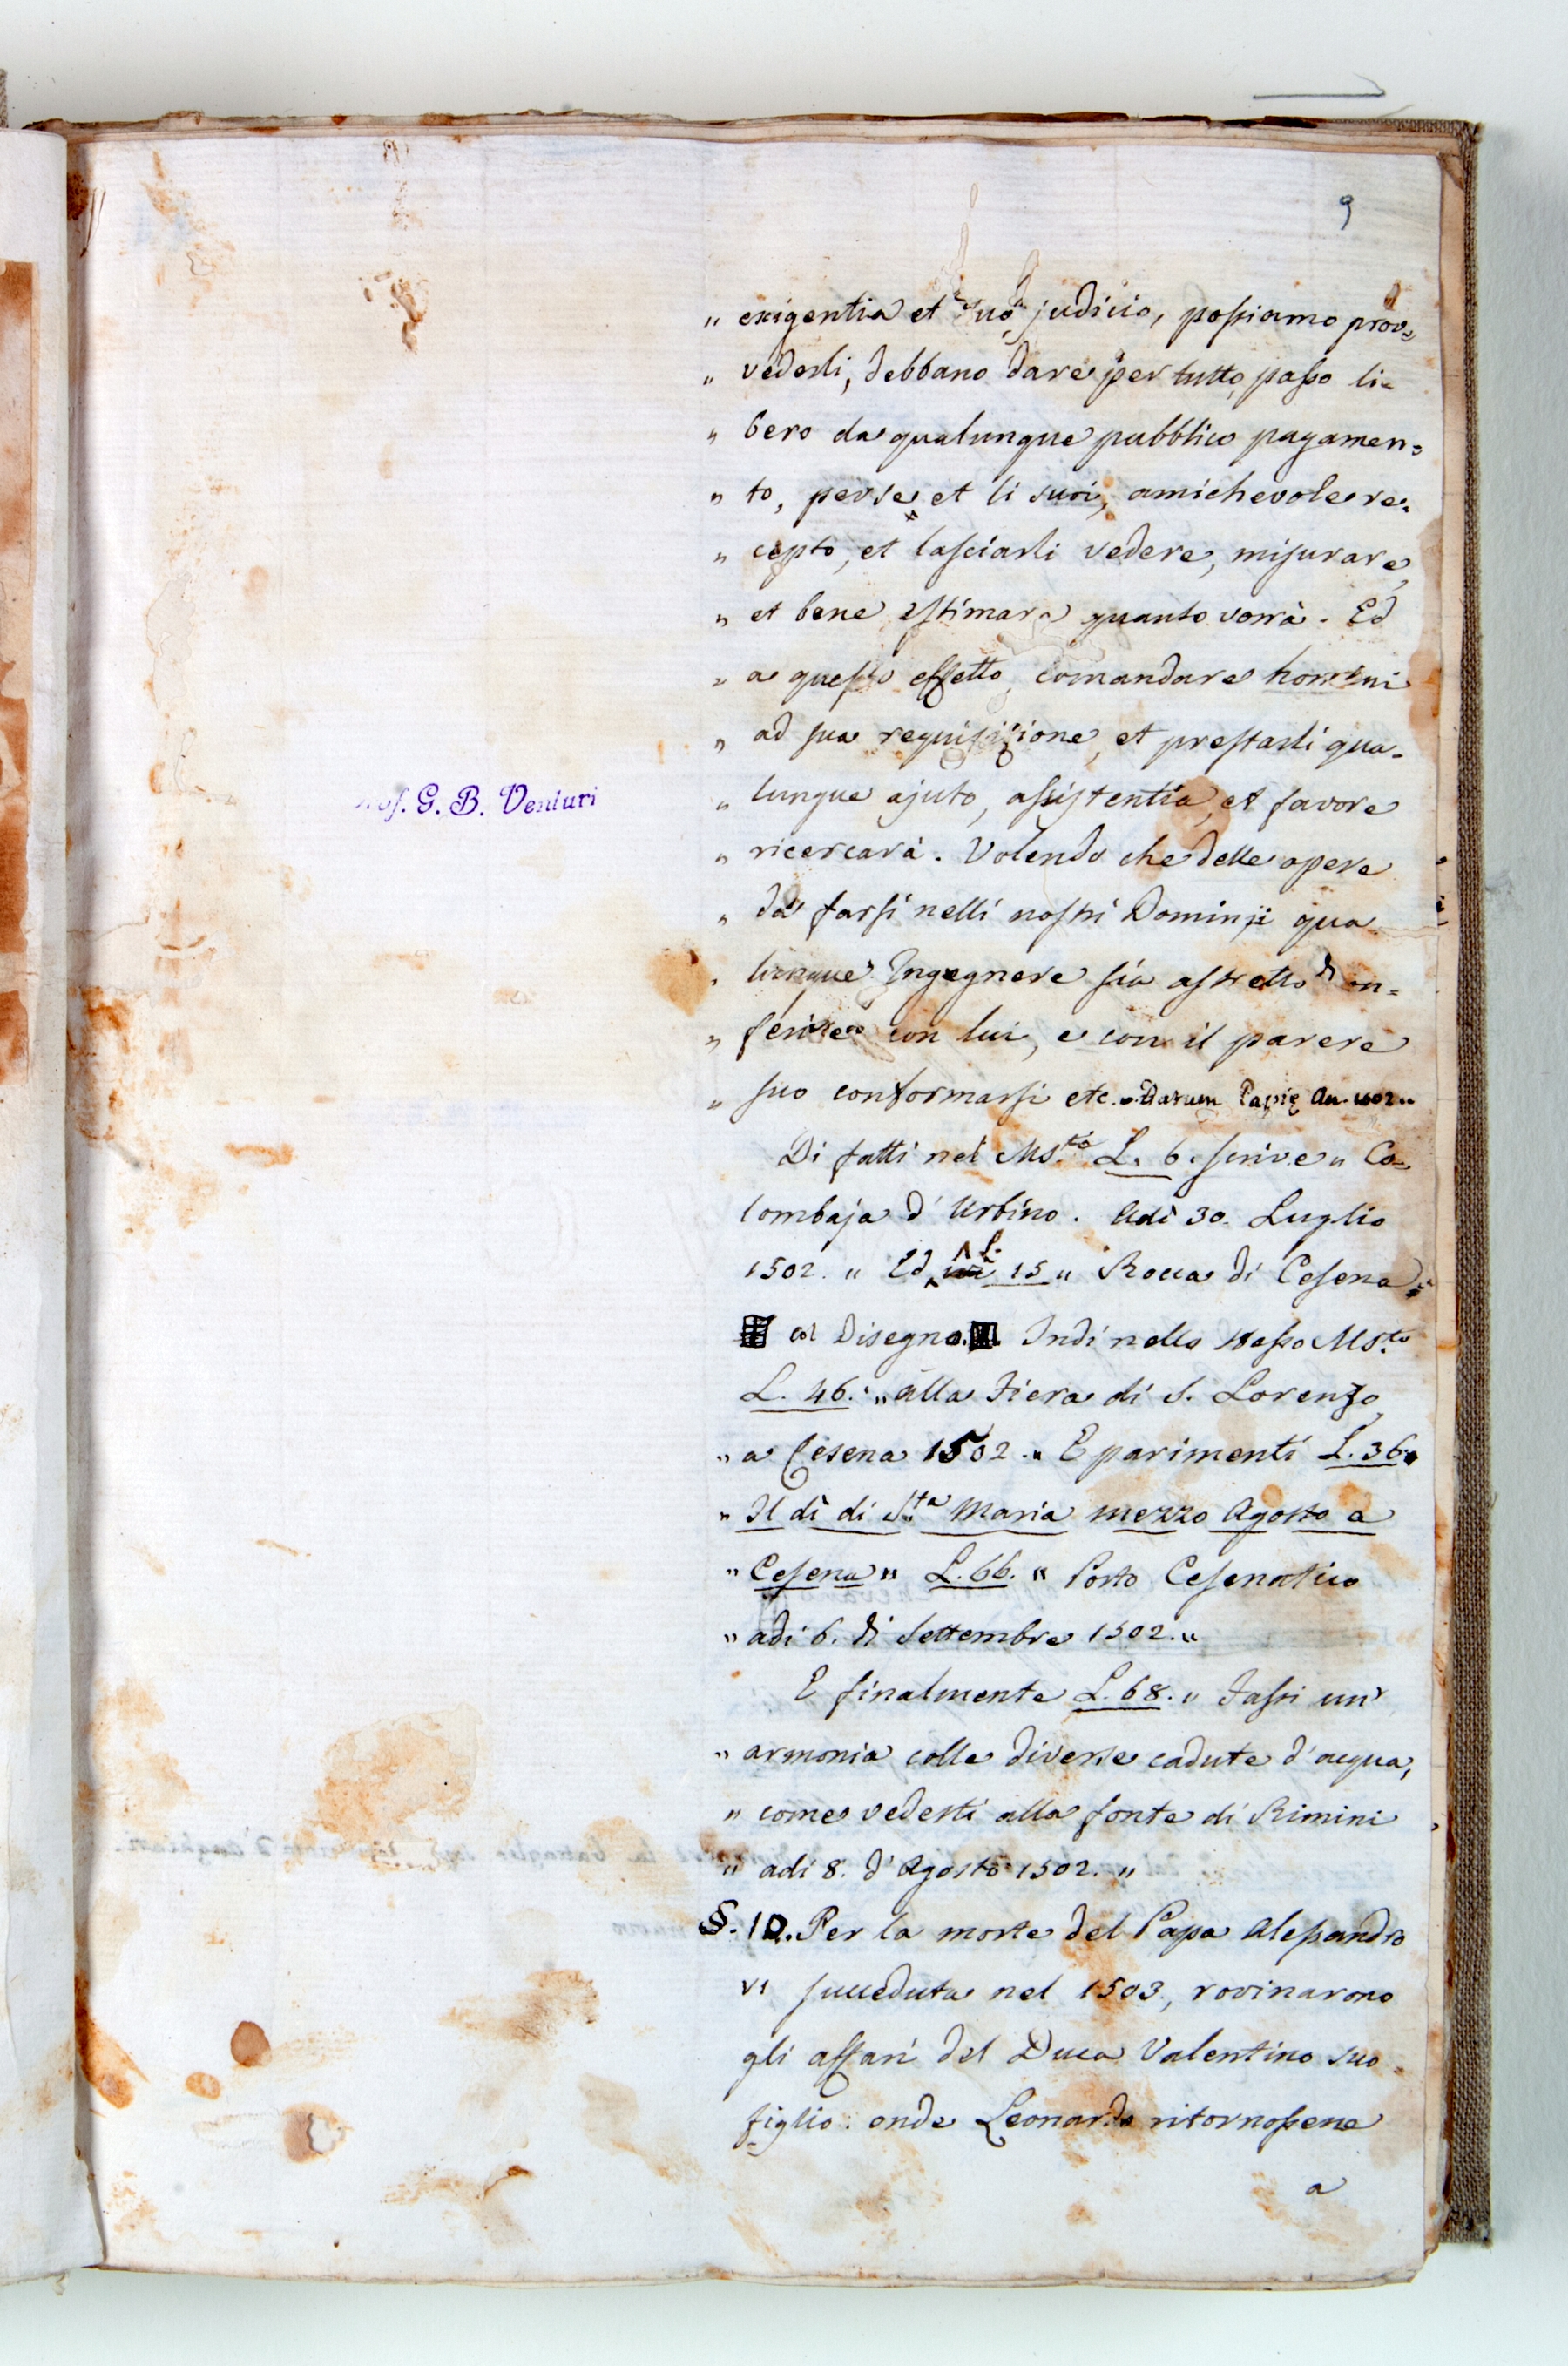 9
„ exigentia et suo judicio, possiamo prov=
„ vederli, debbano dare per tutto, passo li=
„ bero da qualunque pubblico pagamen=
„ to, per se, et li suoi, amichevole re=
„ cepto, et lasciarli vedere, misurare,
„ et bene estimare quanto vorrà. Ed
„ a questo effetto, comandare homini
„ ad sua requisizione, et prestarli qua=
„ lunque ajuto, assistentia, et favore
„ ricercarà. Volendo che delle opere
„ da farsi nelli nostri Dominji qua
„ lunque Ingegnere sia astretto di con=
„ ferire con lui, e con il parere
„ suo conformarsi etc. Datum Papię An. 1502 „
Di fatti nel Ms.to L. 6. scrive „ Co=
lombaja d' Urbino. Adì 30. Luglio
1502. „ Ed L. 15 „ Rocca di Cesena „
col Disegno. Indi nello stesso Ms.to
L. 46. „ alla Fiera di S. Lorenzo
„ a Cesena 1502. „ E parimenti L. 36 „
„ Il dì di S.ta Maria mezzo Agosto a
„ Cesena „ L. 66. „ Porto Cesenatico
„ adì 6. di Settembre 1502. „
E finalmente L. 68. „ Fassi un'
„ armonia colle diverse cadute d'acqua,
„ come vedesti alla fonte di Rimini
„ adì 8. d'Agosto 1502. „
§. 10. Per la morte del Papa Alessandro
VI succeduta nel 1503, rovinarono
gli affari del Duca Valentino suo
figlio: onde Leonardo ritornossene
a
Prof. G. B. Venturi